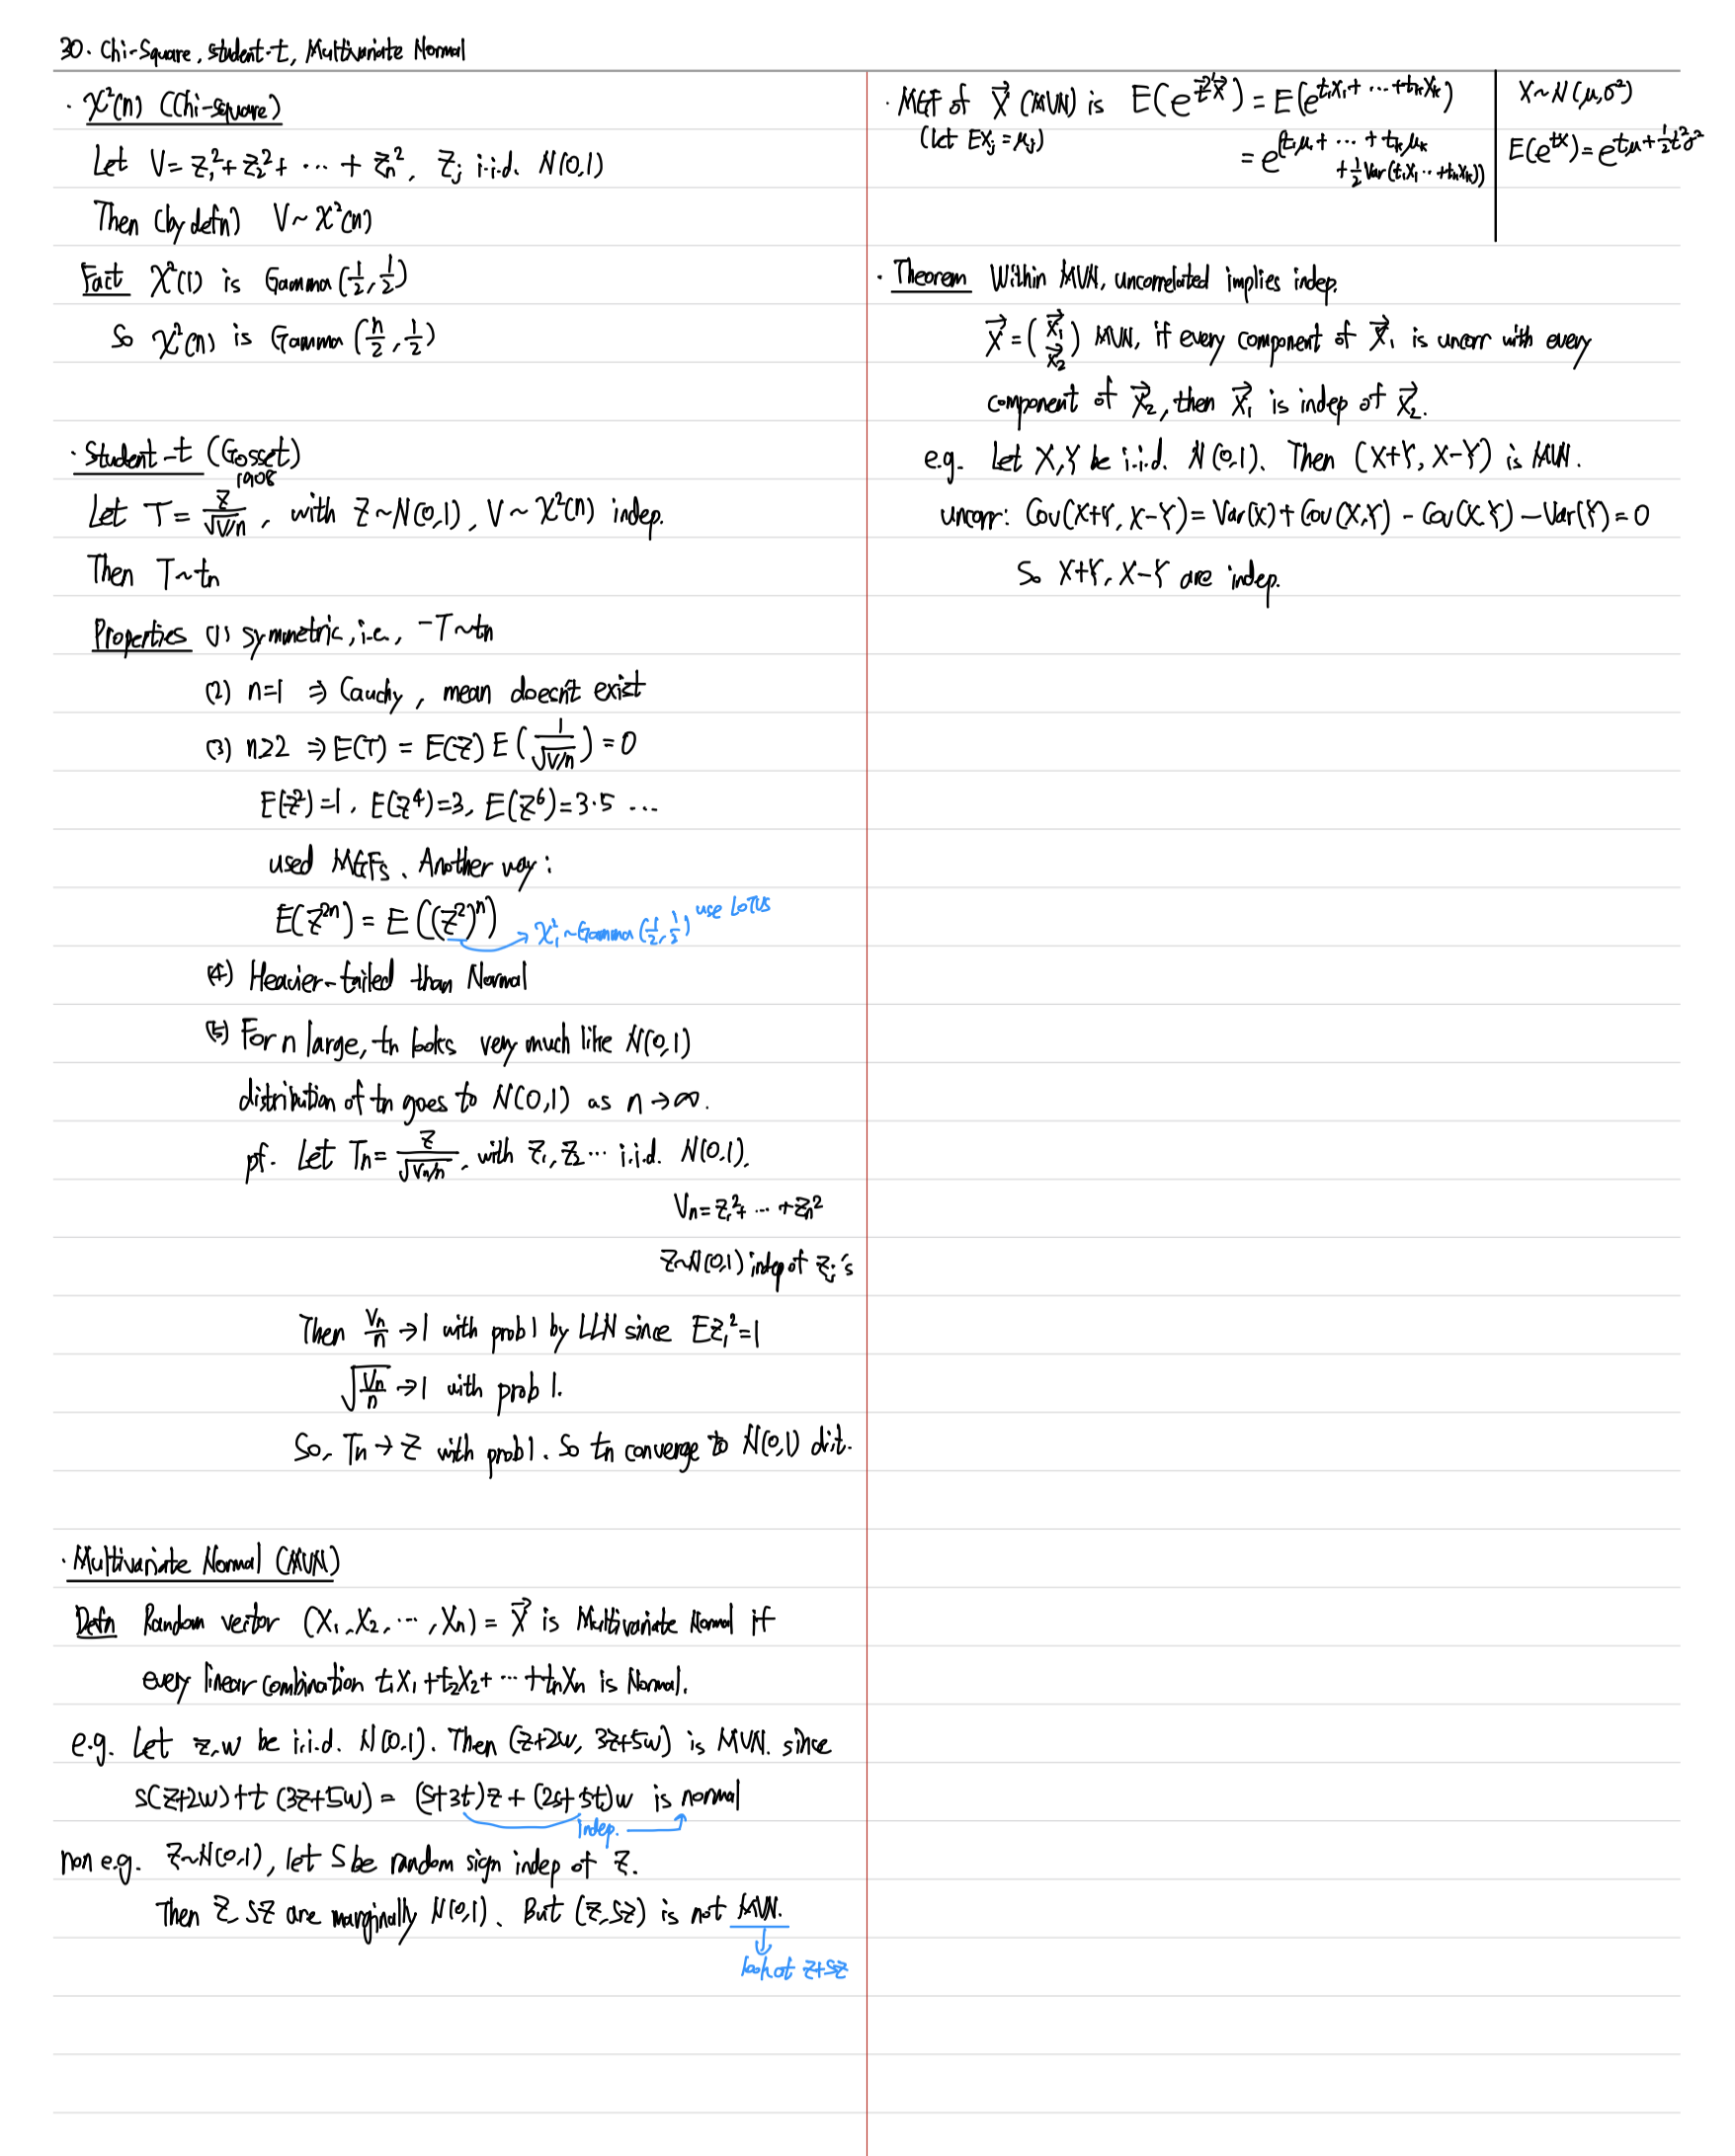 30. Chi-Square, Student-t, Multivariate Normal
· χ²(n) (Chi-square)
Let V = Z₁² + Z₂² + ⋯ + Zₙ², Zⱼ i.i.d. N(0,1)
Then (by defn) V ~ χ²(n)
Fact χ²(1) is Gamma(1/2, 1/2)
So χ²(n) is Gamma(n/2, 1/2)
· Student-t (Gosset)
1908
Let T = Z/√(V/n), with Z ~ N(0,1), V ~ χ²(n) indep.
Then T ~ tₙ
Properties (1) symmetric, i.e., -T ~ tₙ
(2) n=1 ⇒ Cauchy, mean doesn't exist
(3) n≥2 ⇒ E(T) = E(Z) E(1/√(V/n)) = 0
E(Z²)=1, E(Z⁴)=3, E(Z⁶)=3·5 ⋯
used MGFs. Another way:
E(Z²ⁿ) = E((Z²)ⁿ) → χ₁² ~ Gamma(1/2, 1/2) use LOTUS
(4) Heavier-tailed than Normal
(5) For n large, tₙ looks very much like N(0,1)
distribution of tₙ goes to N(0,1) as n → ∞.
pf. Let Tₙ = Z/√(Vₙ/n), with Z₁, Z₂ ⋯ i.i.d. N(0,1).
Vₙ = Z₁² + ⋯ + Zₙ²
Z~N(0,1) indep of Zⱼ's
Then Vₙ/n → 1 with prob 1 by LLN since EZ₁² = 1
√(Vₙ/n) → 1 with prob 1.
So, Tₙ → Z with prob 1. So tₙ converge to N(0,1) dit.
· Multivariate Normal (MVN)
Defn Random vector (X₁, X₂, ⋯, Xₙ) = X⃗ is Multivariate Normal if
every linear combination t₁X₁ + t₂X₂ + ⋯ + tₙXₙ is Normal.
e.g. Let z, w be i.i.d. N(0,1). Then (z+2w, 3z+5w) is MVN. since
s(z+2w) + t(3z+5w) = (s+3t)z + (2s+5t)w is normal
indep.
non e.g. Z~N(0,1), let S be random sign indep of Z.
Then Z, SZ are marginally N(0,1). But (Z, SZ) is not MVN.
look at Z+SZ
· MGF of X⃗ (MVN) is E(e^(t⃗'X⃗)) = E(e^(t₁X₁ + ⋯ + tₖXₖ))
(let EXⱼ = μⱼ)
= e^(t₁μ₁ + ⋯ + tₖμₖ + ½Var(t₁X₁ ⋯ + tₖXₖ))
X ~ N(μ, σ²)
E(e^(tX)) = e^(tμ + ½t²σ²)
· Theorem Within MVN, uncorrelated implies indep.
X⃗ = (X⃗₁ X⃗₂) MVN, if every component of X⃗₁ is uncorr with every
component of X⃗₂, then X⃗₁ is indep of X⃗₂.
e.g. Let X, Y be i.i.d. N(0,1). Then (X+Y, X-Y) is MVN.
uncorr: Cov(X+Y, X-Y) = Var(X) + Cov(X,Y) - Cov(X,Y) - Var(Y) = 0
So X+Y, X-Y are indep.